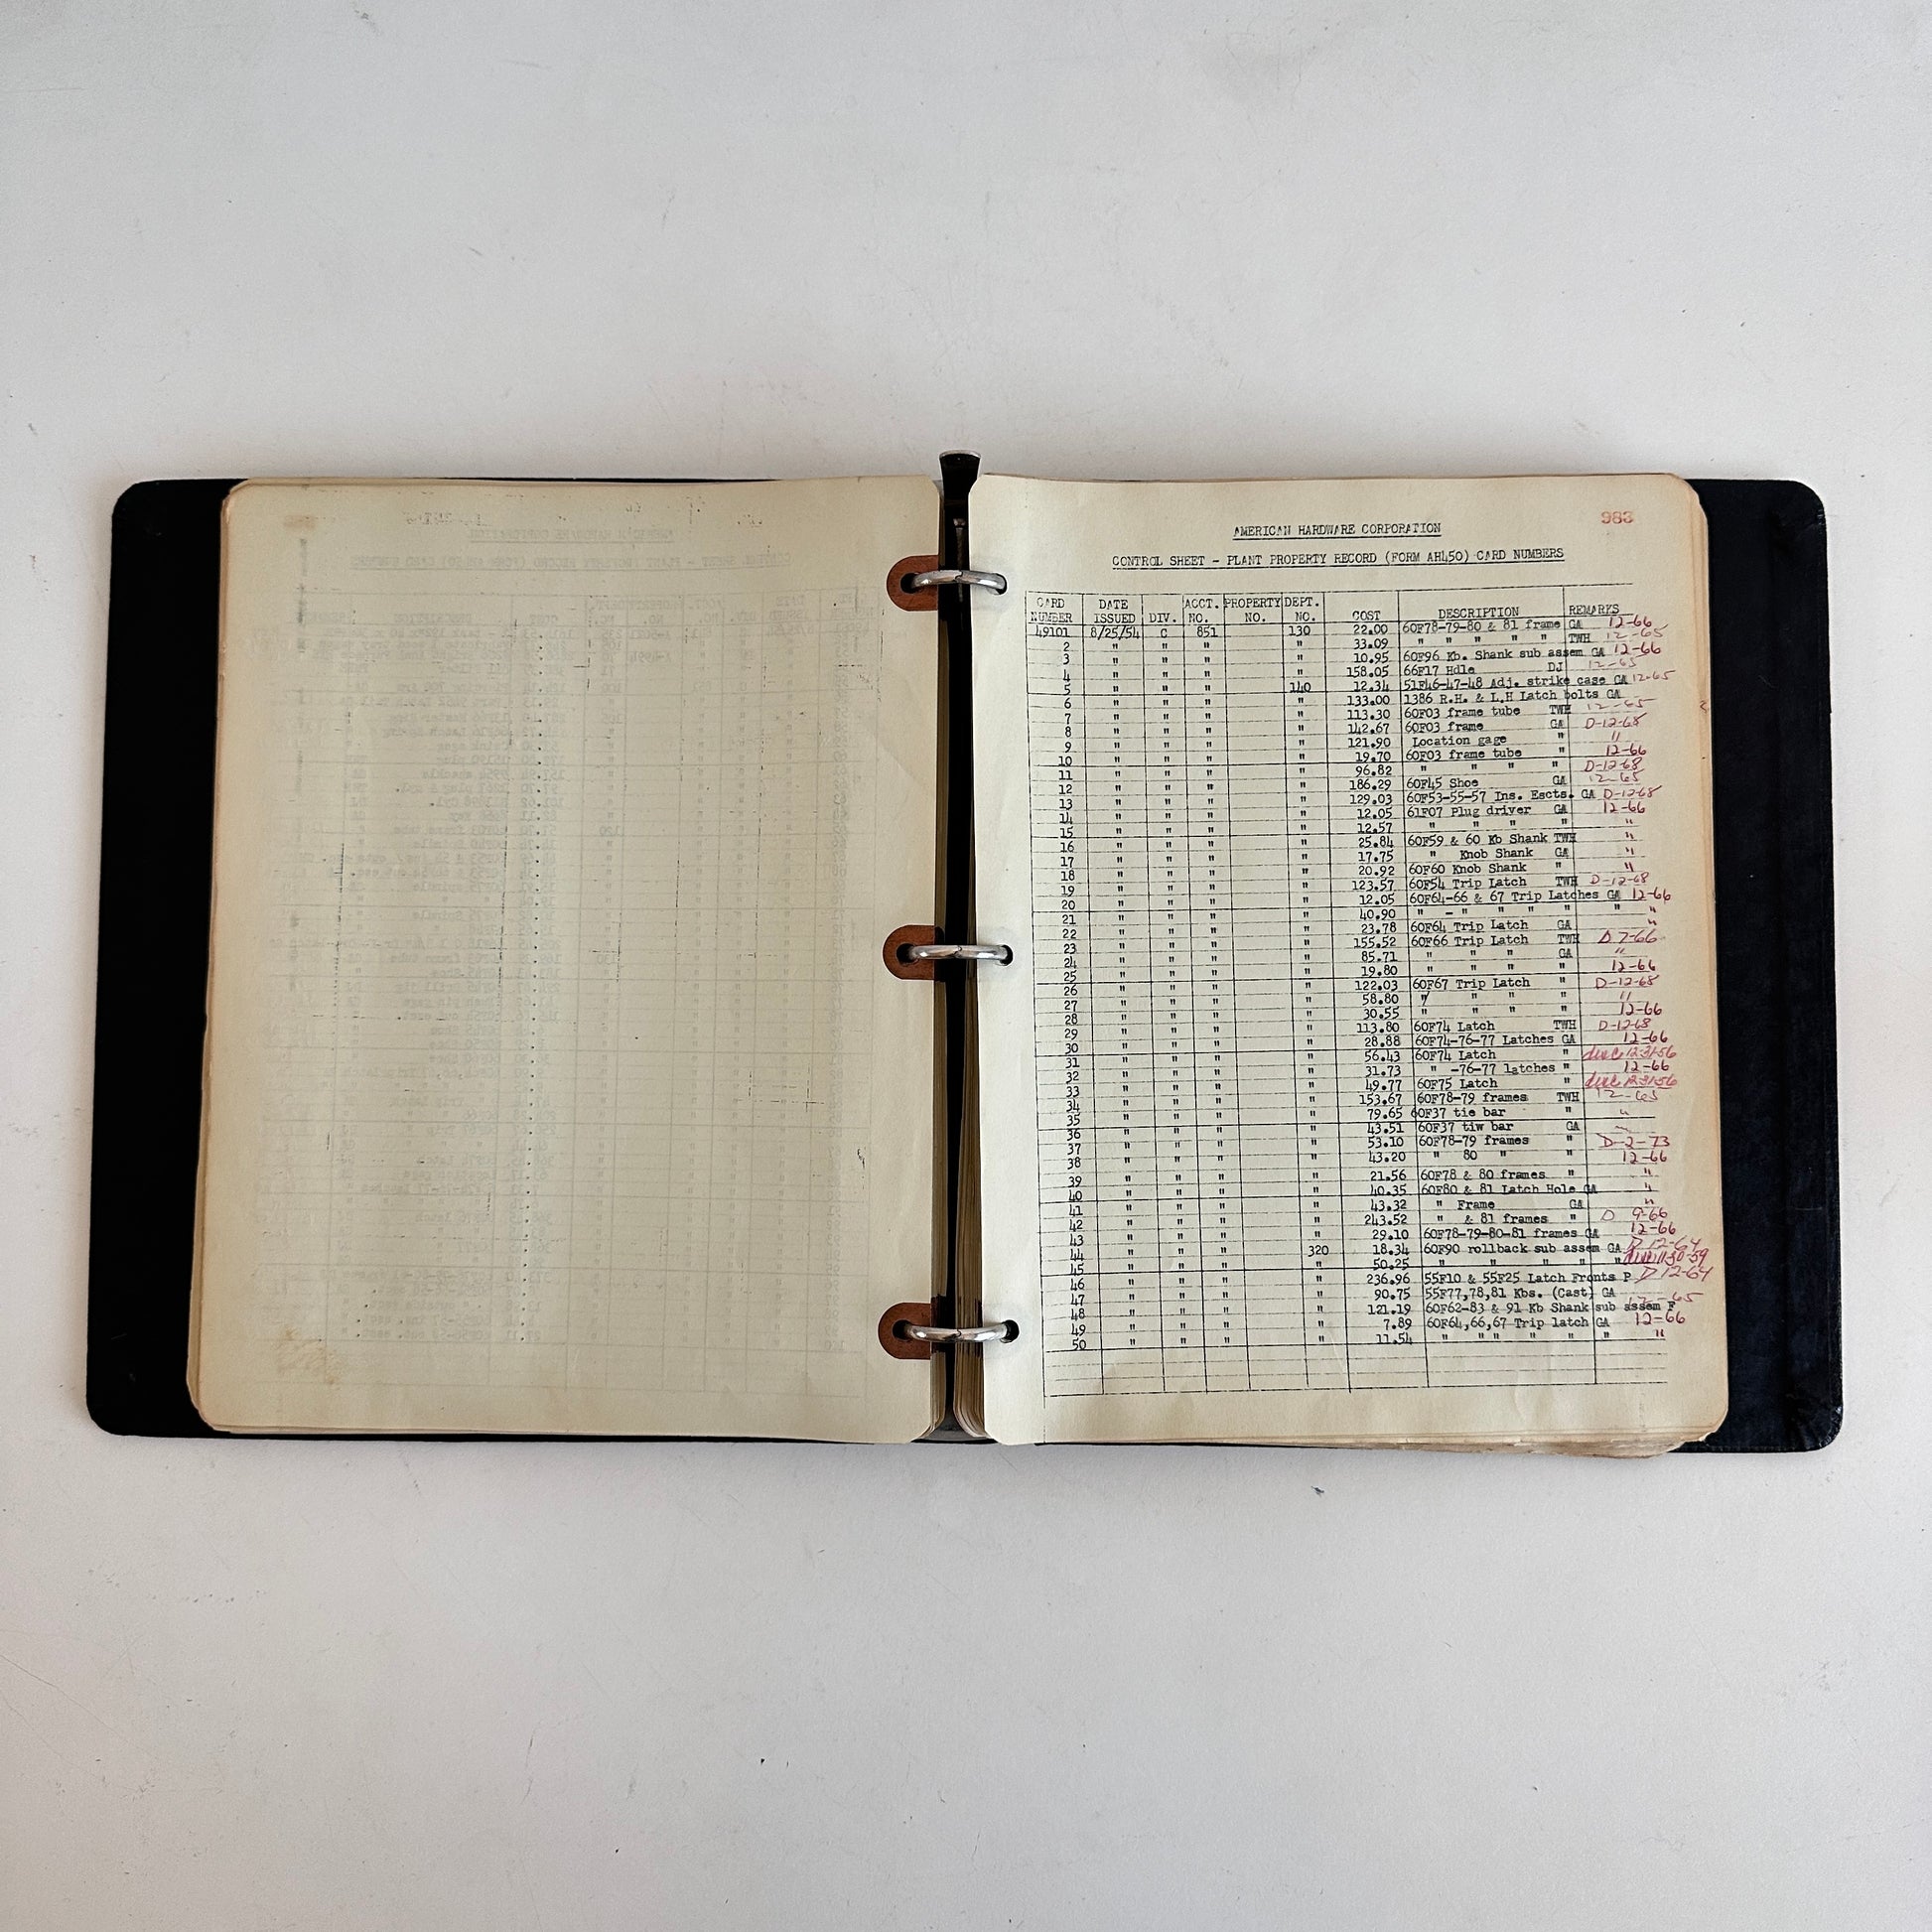 983
AMERICAN HARDWARE CORPORATION
CONTROL SHEET - PLANT PROPERTY RECORD (FORM AH450) CARD NUMBERS
CARD NUMBER DATE ISSUED DIV. ACCT. NO. PROPERTY NO. DEPT. NO. COST DESCRIPTION REMARKS
49101 8/25/54 C 851 130 22.00 60F78-79-80 & 81 frame GA 12-66
2 " " " " 33.09 " " " " " TWH 12-65
3 " " " " 10.95 60F96 Kb. Shank sub assem GA 12-66
4 " " " " 158.05 66F17 Hdle DJ 12-65
5 " " " 140 12.34 51F46-47-48 Adj. strike case GA 12-65
6 " " " " 133.00 1386 R.H. & L.H Latch bolts GA
7 " " " " 113.30 60F03 frame tube TWH 12-65
8 " " " " 142.67 60F03 frame GA D-12-68
9 " " " " 121.90 Location gage " "
10 " " " " 19.70 60F03 frame tube " 12-66
11 " " " " 96.82 " " " " D-12-68
12 " " " " 186.29 60F45 Shoe GA 12-65
13 " " " " 129.03 60F53-55-57 Ins. Escts. GA D-12-68
14 " " " " 12.05 61F07 Plug driver GA 12-66
15 " " " " 12.57 " " " " "
16 " " " " 25.84 60F59 & 60 Kb Shank TWH "
17 " " " " 17.75 " Knob Shank GA "
18 " " " " 20.92 60F60 Knob Shank " "
19 " " " " 123.57 60F54 Trip Latch TWH D-12-68
20 " " " " 12.05 60F64-66 & 67 Trip Latches GA 12-66
21 " " " " 40.90 " - " " " " " "
22 " " " " 23.78 60F64 Trip Latch GA "
23 " " " " 155.52 60F66 Trip Latch TWH D 7-66
24 " " " " 85.71 " " " GA "
25 " " " " 19.80 " " " " 12-66
26 " " " " 122.03 60F67 Trip Latch " D-12-68
27 " " " " 58.80 " " " " "
28 " " " " 30.55 " " " " 12-66
29 " " " " 113.80 60F74 Latch TWH D-12-68
30 " " " " 28.88 60F74-76-77 Latches GA 12-66
31 " " " " 56.43 60F74 Latch " 12-31-56
32 " " " " 31.73 " -76-77 latches " 12-66
33 " " " " 49.77 60F75 Latch " 12-31-56
34 " " " " 153.67 60F78-79 frames TWH 12-65
35 " " " " 79.65 60F37 tie bar " "
36 " " " " 43.51 60F37 tiw bar GA "
37 " " " " 53.10 60F78-79 frames " D-2-73
38 " " " " 43.20 " 80 " " 12-66
39 " " " " 21.56 60F78 & 80 frames " "
40 " " " " 40.35 60F80 & 81 Latch Hole GA "
41 " " " " 43.32 " Frame GA "
42 " " " " 243.52 " & 81 frames " D 9-66
43 " " " " 29.10 60F78-79-80-81 frames GA 12-66
44 " " " 320 18.34 60F90 rollback sub assem GA D 12-64
45 " " " " 50.25 " " " " " 11-30-59
46 " " " " 236.96 55F10 & 55F25 Latch Fronts P D 12-64
47 " " " " 90.75 55F77,78,81 Kbs. (Cast) GA
48 " " " " 121.19 60F62-83 & 91 Kb Shank sub assem F 12-65
49 " " " " 7.89 60F64,66,67 Trip latch GA 12-66
50 " " " " 11.54 " " " " " " "